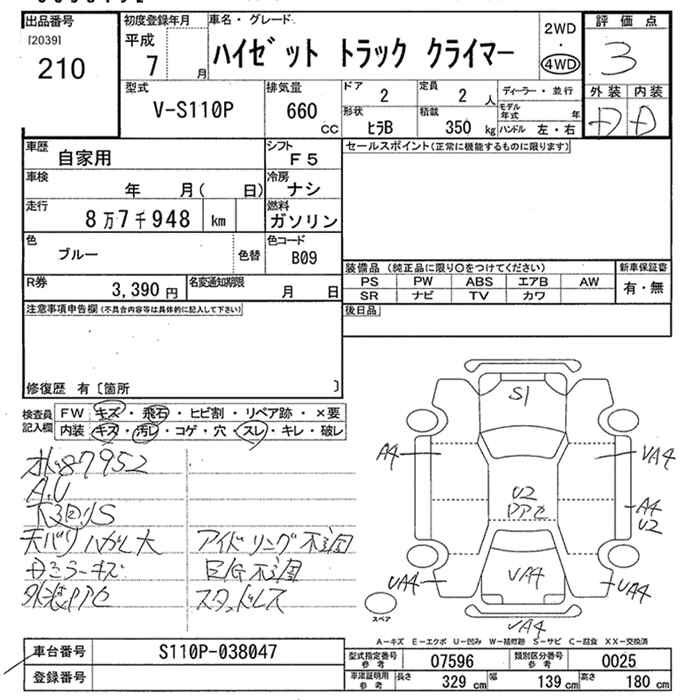 出品番号
[2039]
210
初度登録年月
平成
7 月
車名・グレード
ハイゼット トラック クライマー
2WD
・
4WD
評価点
3
外装 内装
D D
型式
V-S110P
排気量
660
cc
ドア
2
定員
2 人
形状
ヒラB
積載
350 kg
ディーラー・並行
モデル年式 年
ハンドル 左・右
車歴
自家用
シフト
F5
車検
年 月( 日)
冷房
ナシ
走行
8万7千948 km
燃料
ガソリン
色
ブルー
色替
色コード
B09
R券
3,390 円
名変通知期限
月 日
セールスポイント(正常に機能するものに限ります)
装備品 (純正品に限り○をつけてください)
PS PW ABS エアB AW
SR ナビ TV カワ
新車保証書
有・無
後日品
注意事項申告欄(不具合内容等は具体的に記入して下さい)
修復歴 有〔箇所 〕
検査員
記入欄
FW キズ・飛石・ヒビ割・リペア跡・×要
内装 キズ・汚レ・コゲ・穴・スレ・キレ・破レ
87952
A.U
下回りS
天バリハガレ大
アイドリング不調
ミラーキズ
E/G不調
外装Pアセ
スタッドレス
S1
A4
VA4
U2
Pアセ
A4
U2
UA4
VA4
UA4
VA4
スペア
A-キズ E-エクボ U-凹み W-補修跡 S-サビ C-腐食 XX-交換済
車台番号
S110P-038047
登録番号
型式指定番号
参考
07596
類別区分番号
参考
0025
車庫証明用
参考
長さ
329 cm
幅
139 cm
高さ
180 cm